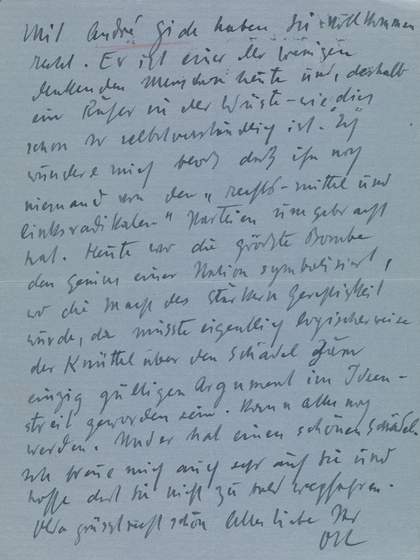 Mit André Gide haben Sie vollkommen
recht. Er ist einer der wenigen
denkenden Menschen heute und, deshalb
ein Rufer in der Wüste – wie dies
schon so selbstverständlich ist. Ich
wundere mich bloß daß ihn noch
niemand von den „rechts-mittel und
linksradikalen" Parteien umgebracht
hat. Heute wo die größte Bombe
den Genius einer Nation symbolisiert,
wo die Macht des Stärkern Gerechtigkeit
wurde, da müsste eigentlich logischerweise
der Knüttel über den Schädel zum
einzig gültigen Argument im Ideen-
streit geworden sein. Kann alles noch
werden. hat einen schönen Schädel
Ich freue mich auch sehr auf Sie und
hoffe dass Sie nicht zu bald wegfahren.
grüsst recht schön Alles liebe Ihr